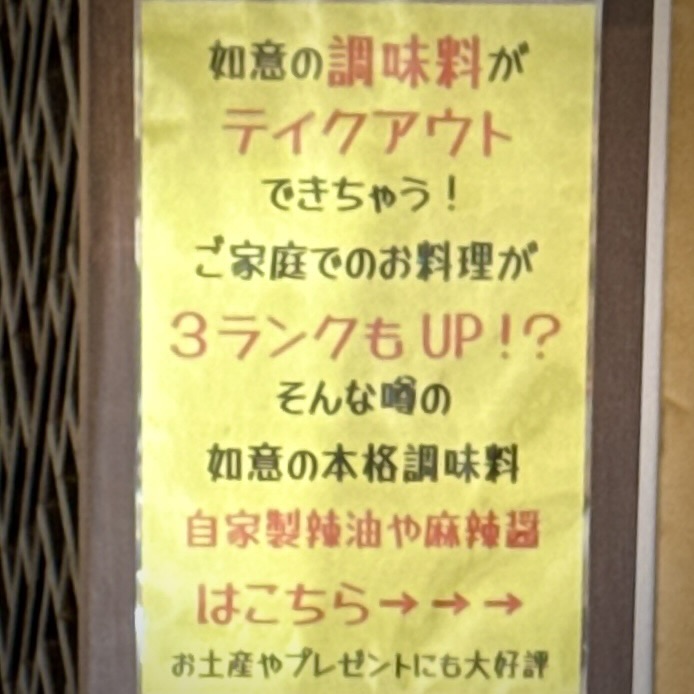 如意の調味料が
テイクアウト
できちゃう！
ご家庭でのお料理が
３ランクもUP！？
そんな噂の
如意の本格調味料
自家製辣油や麻辣醤
はこちら→→→
お土産やプレゼントにも大好評